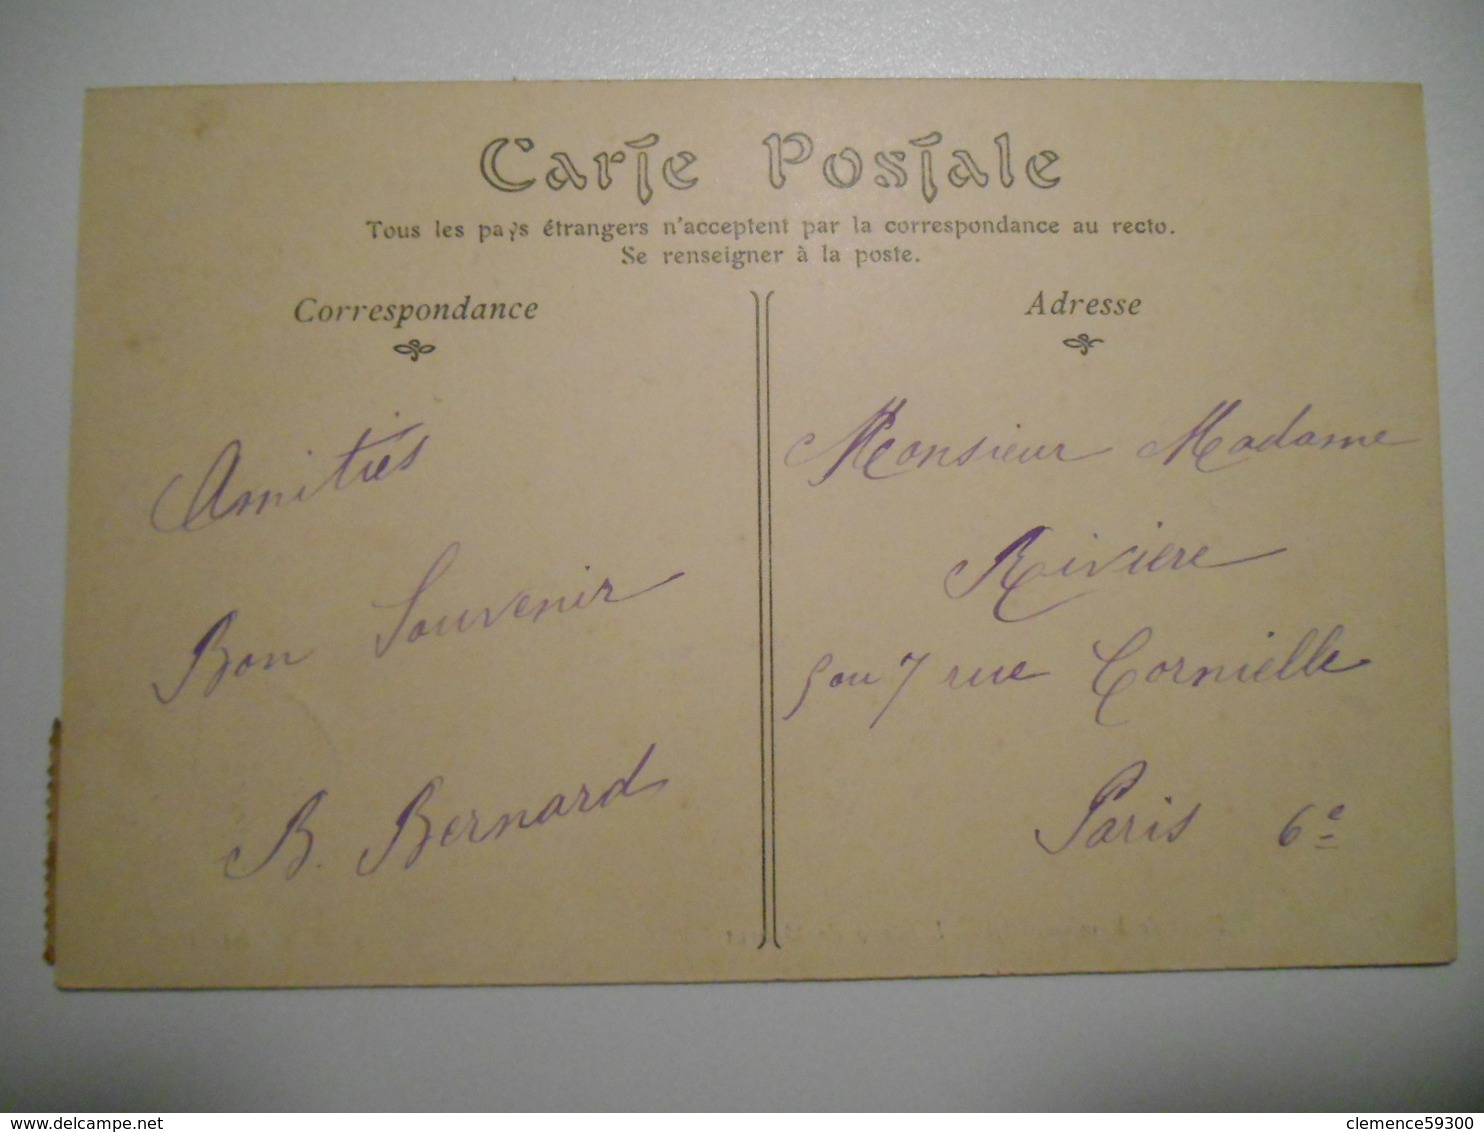 Carte Postale
Tous les pays étrangers n'acceptent par la correspondance au recto.
Se renseigner à la poste.
Correspondance
Amitiés
Bon Souvenir
B. Bernard
Adresse
Monsieur Madame
Riviere
5 ou 7 rue Cornielle
Paris 6e
www.delcampe.net
clemence59300